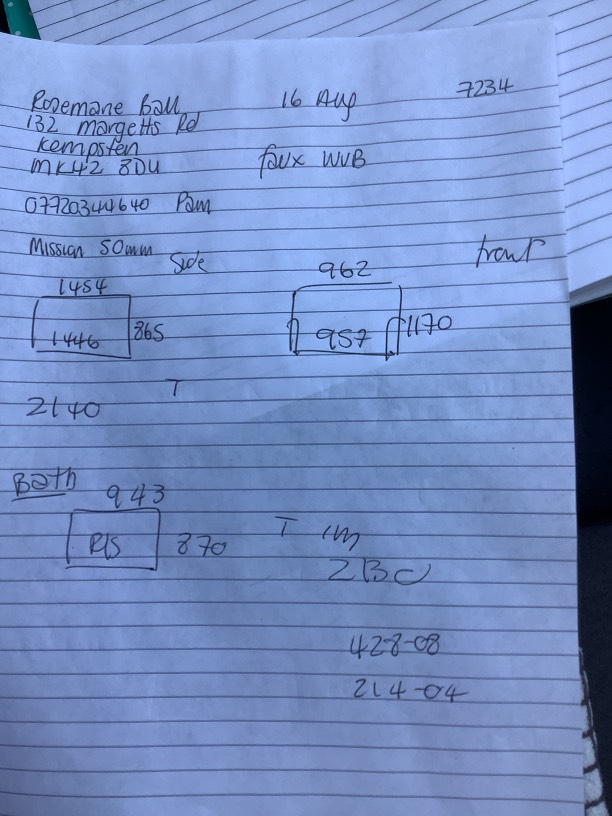 Rosemarie Ball 16 Aug 7234
132 Margetts Rd
Kempsten
MK42 8DU faux WVB
07720344640 Pam
Mission 50mm Side front
1454 962
1446 865 957 1170
2140 T
Bath
943
R/S 870 T 1m
2BC
428-08
214-04